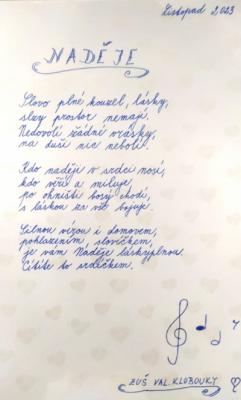 Listopad 2023
NADĚJE
Slovo plné kouzel, lásky,
slzy prostor nemají.
Nedovolí žádné vrásky,
na duši nic nebolí.
Kdo naději v srdci nosí,
kdo věří a miluje,
po ohništi bosý chodí,
s láskou za vše bojuje.
Silnou vírou i domovem,
pohlazením slovíčkem,
je vám Naděje láskyplnou.
Cítíte to srdíčkem.
ZUŠ VAL. KLOBOUKY